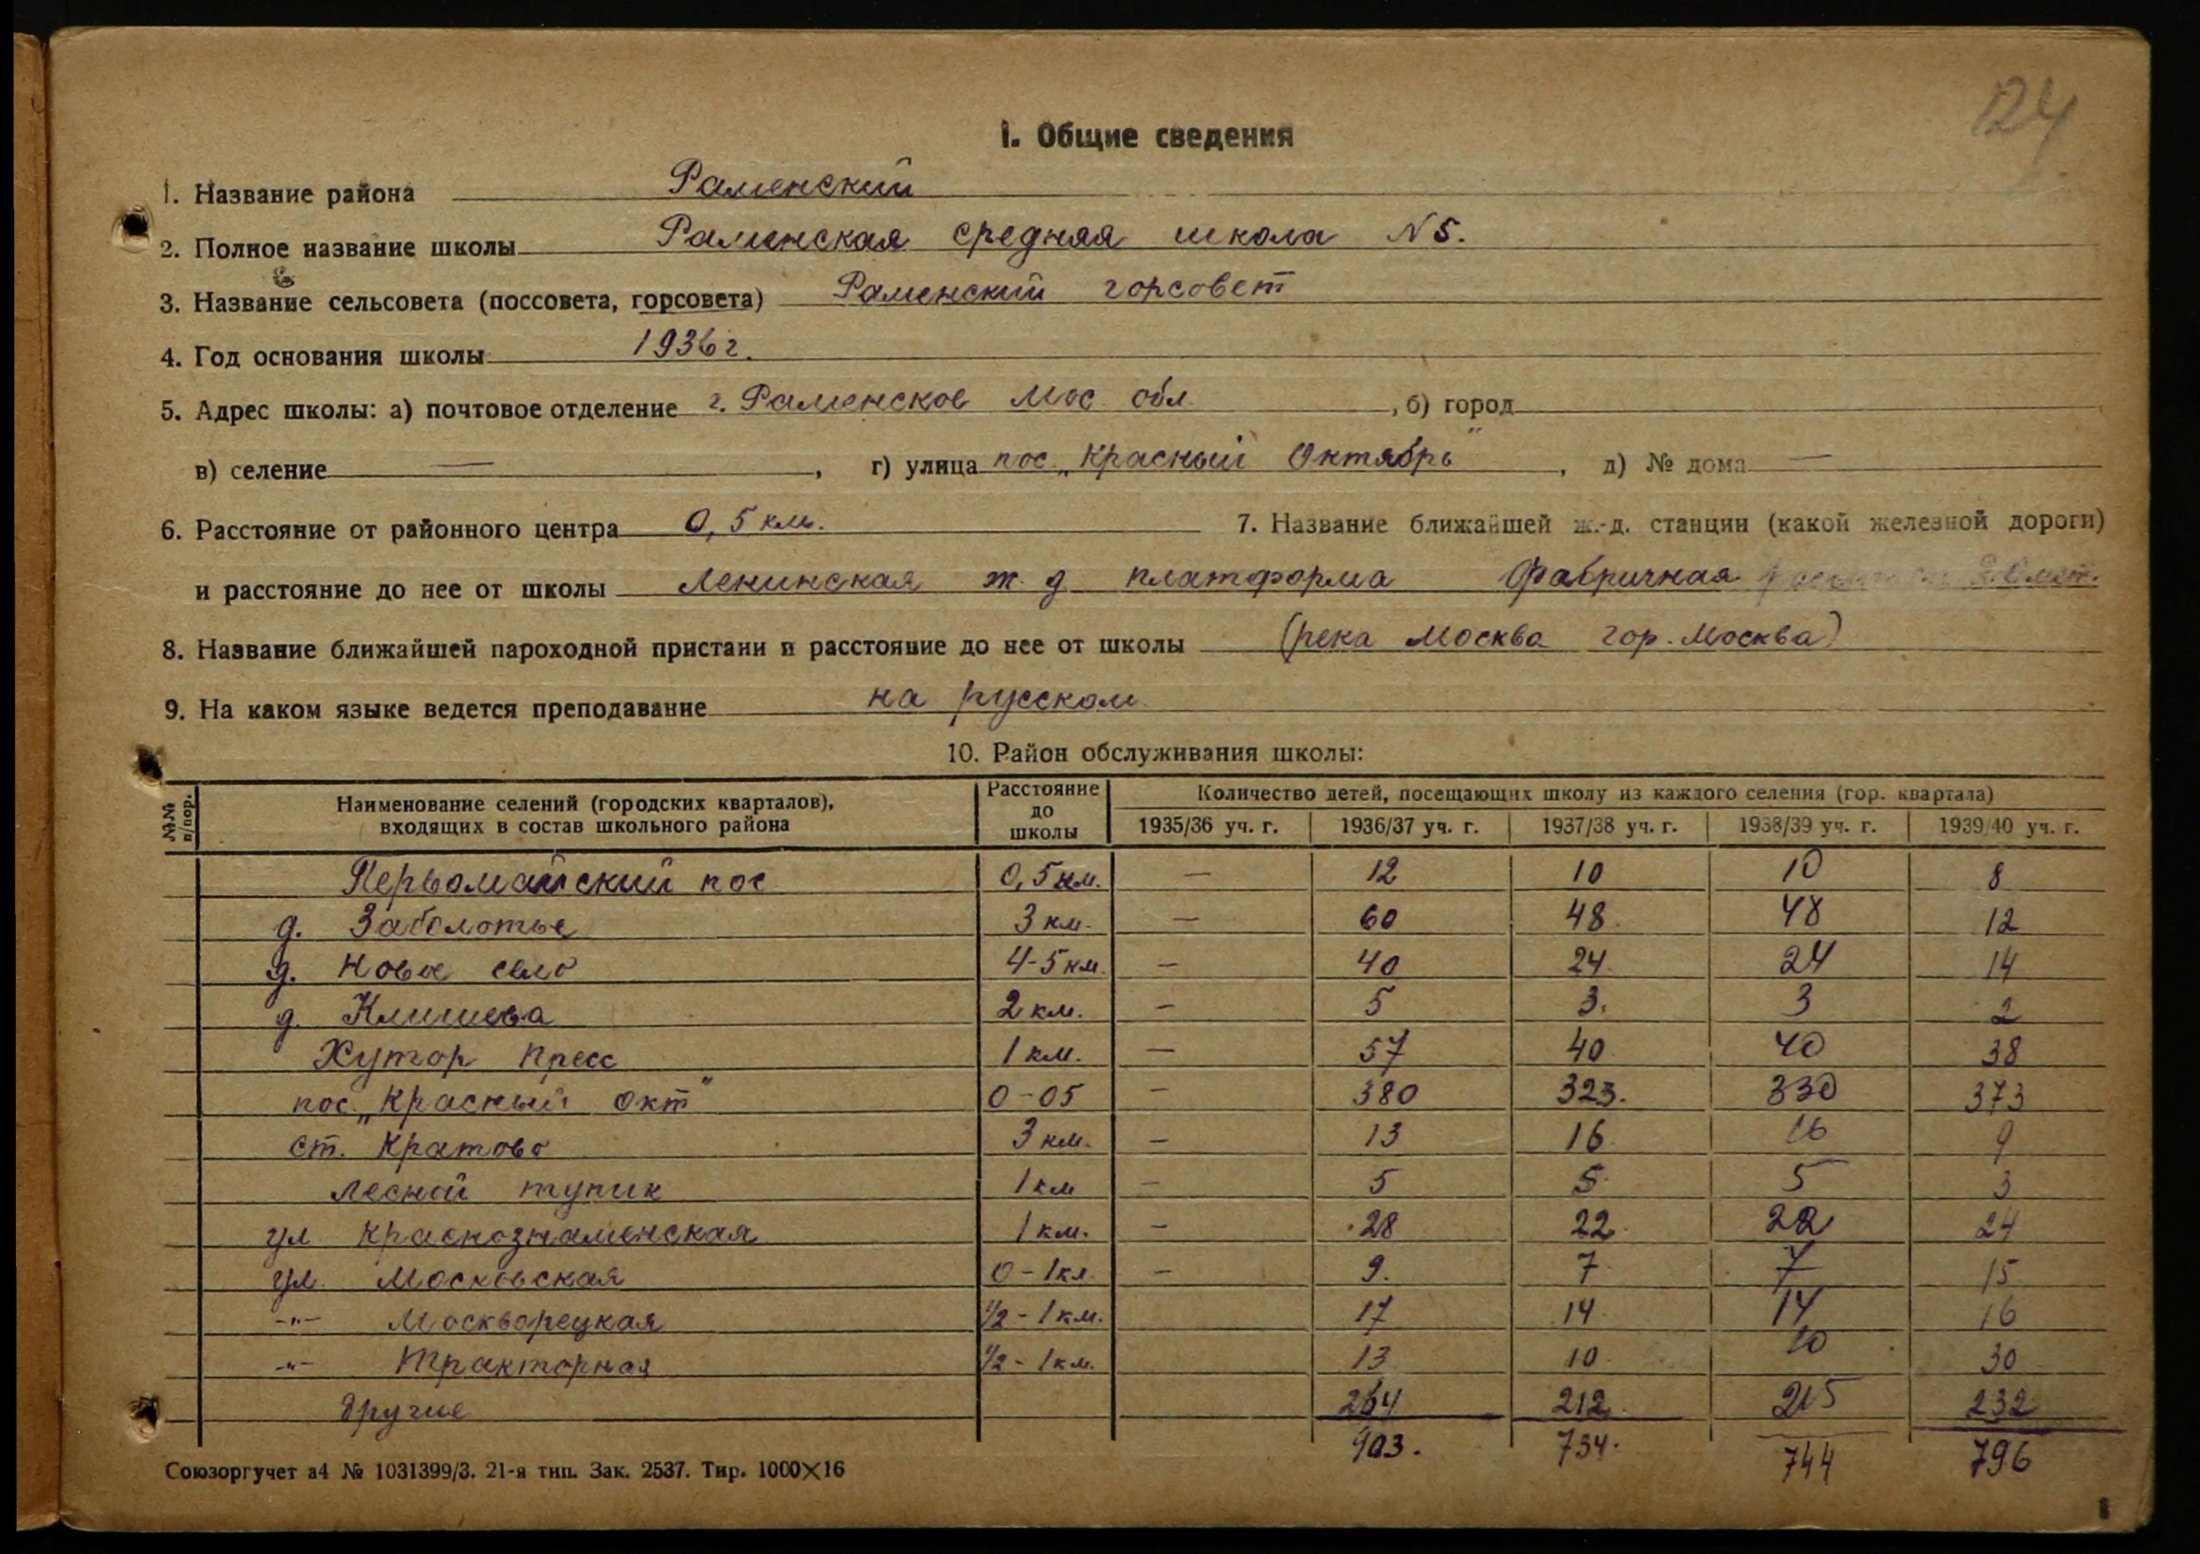 124
I. Общие сведения
1. Название района Раменский
2. Полное название школы Раменская средняя школа N 5.
3. Название сельсовета (поссовета, горсовета) Раменский горсовет
4. Год основания школы 1936 г.
5. Адрес школы: а) почтовое отделение г. Раменское Мос. обл. , б) город
в) селение — , г) улица пос. „Красный Октябрь" , д) № дома —
6. Расстояние от районного центра 0,5 км. 7. Название ближайшей ж.-д. станции (какой железной дороги)
и расстояние до нее от школы Ленинская ж. д платформа Фабричная
8. Название ближайшей пароходной пристани и расстояние до нее от школы (река Москва гор. Москва)
9. На каком языке ведется преподавание на русском
10. Район обслуживания школы:
№№ п/пор. Наименование селений (городских кварталов), входящих в состав школьного района Расстояние до школы Количество детей, посещающих школу из каждого селения (гор. квартала)
1935/36 уч. г. 1936/37 уч. г. 1937/38 уч. г. 1938/39 уч. г. 1939/40 уч. г.
Первомайский пос 0,5 км. — 12 10 10 8
д. Заболотье 3 км. — 60 48 48 12
д. Новое село 4-5 км. — 40 24 24 14
д. Клишева 2 км. — 5 3. 3 2
Хутор Пресс 1 км. — 57 40 40 38
пос. „Красный окт" 0-05 — 380 323. 330 373
ст. Кратово 3 км. — 13 16 16 9
Лесной тупик 1 км — 5 5 5 3
ул. Краснознаменская 1 км. — 28 22 22 24
ул. Московская 0-1 км. — 9. 7 7 15
-"- Москворецкая 1/2 - 1 км. 17 14 14 16
-"- Тракторная 1/2 - 1 км. 13 10 10 30
другие 264 212 215 232
903. 734. 744 796
Союзоргучет а4 № 1031399/3. 21-я тип. Зак. 2537. Тир. 1000×16